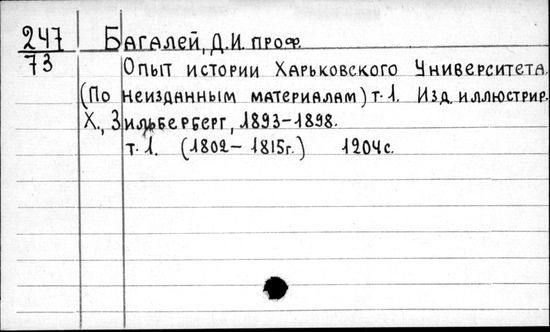 247 Багалей, Д.И. проф.
73 Опыт истории Харьковского Университета.
(По неизданным материалам) т.1. Изд. иллюстрир.
Х., Зильберберг, 1893-1898.
т.1. (1802-1815г.) 1204с.